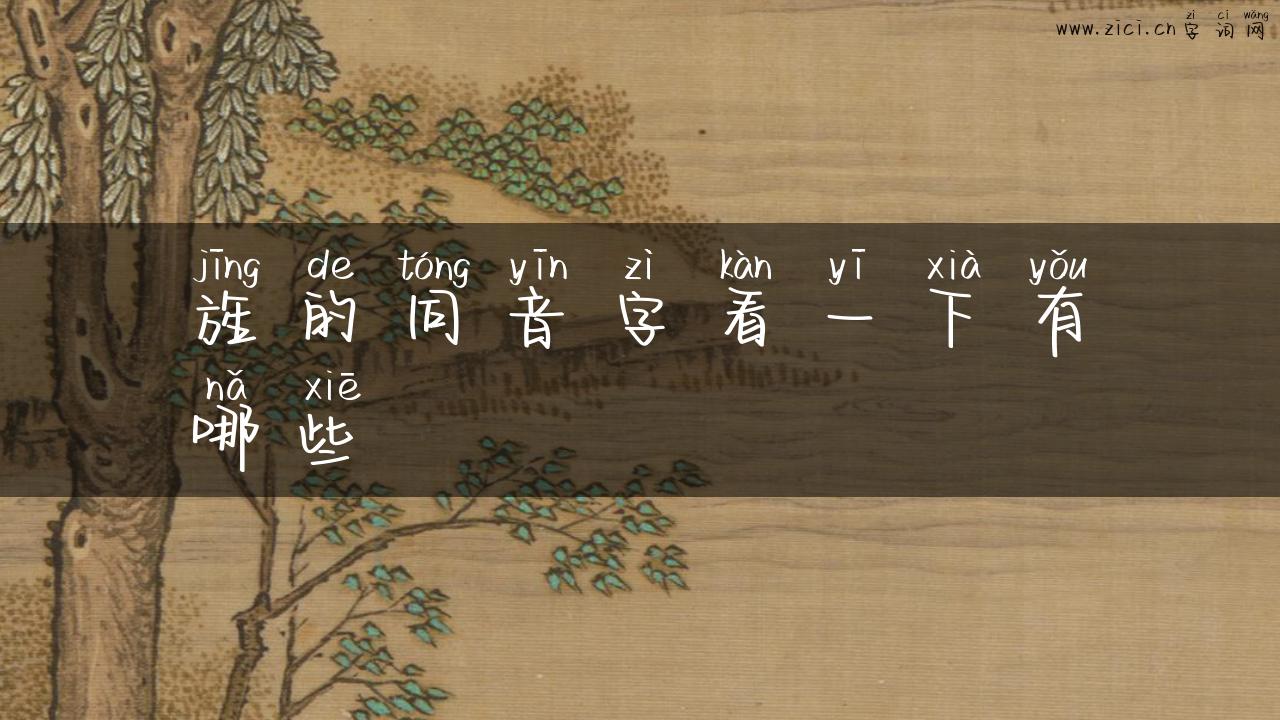 zì cí wǎng
www.zici.cn 字词网
jīng de tóng yīn zì kàn yī xià yǒu
旌的同音字看一下有
nǎ xiē
哪些